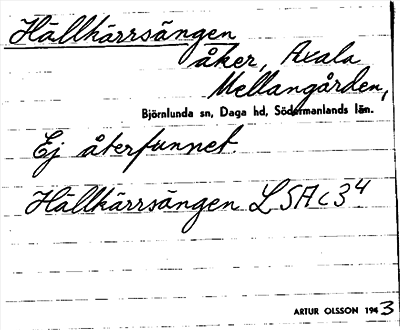 Hällkärrsängen
åker, Axala
Mellangården,
Björnlunda sn, Daga hd, Södermanlands län.
Ej återfunnet.
Hällkärrsängen LSA c 34
ARTUR OLSSON 1943